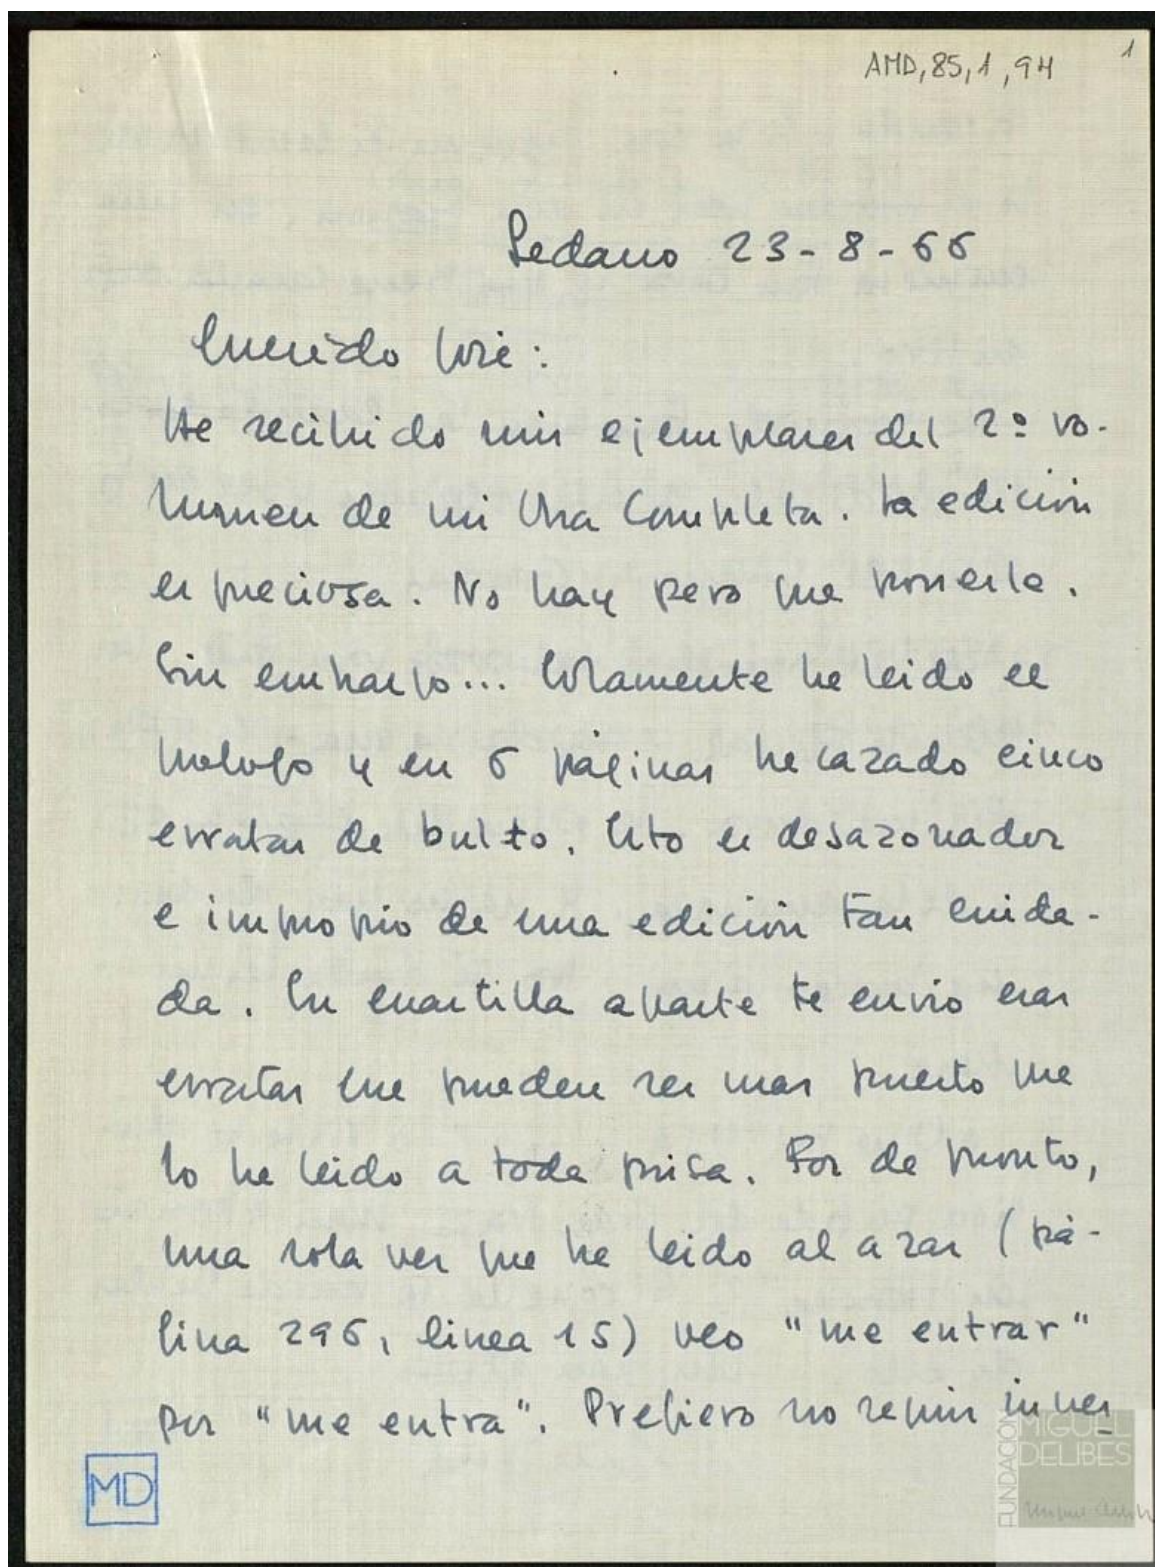 AMD,85,1,94
1
Sedano 23-8-66
Querido José:
He recibido mis ejemplares del 2º vo-
lumen de mi Obra Completa. La edición
es preciosa. No hay pero que ponerle.
Sin embargo... Solamente he leido el
prologo y en 6 páginas he cazado cinco
erratas de bulto. Esto es desazonador
e impropio de una edición tan cuida-
da. En cuartilla aparte te envio esas
erratas que pueden ser mas puesto que
lo he leido a toda prisa. Por de pronto,
una sola vez que he leido al azar (pá-
gina 296, linea 15) veo "me entrar"
por "me entra". Prefiero no seguir inves
MD
FUNDACIÓN
MIGUEL
DELIBES